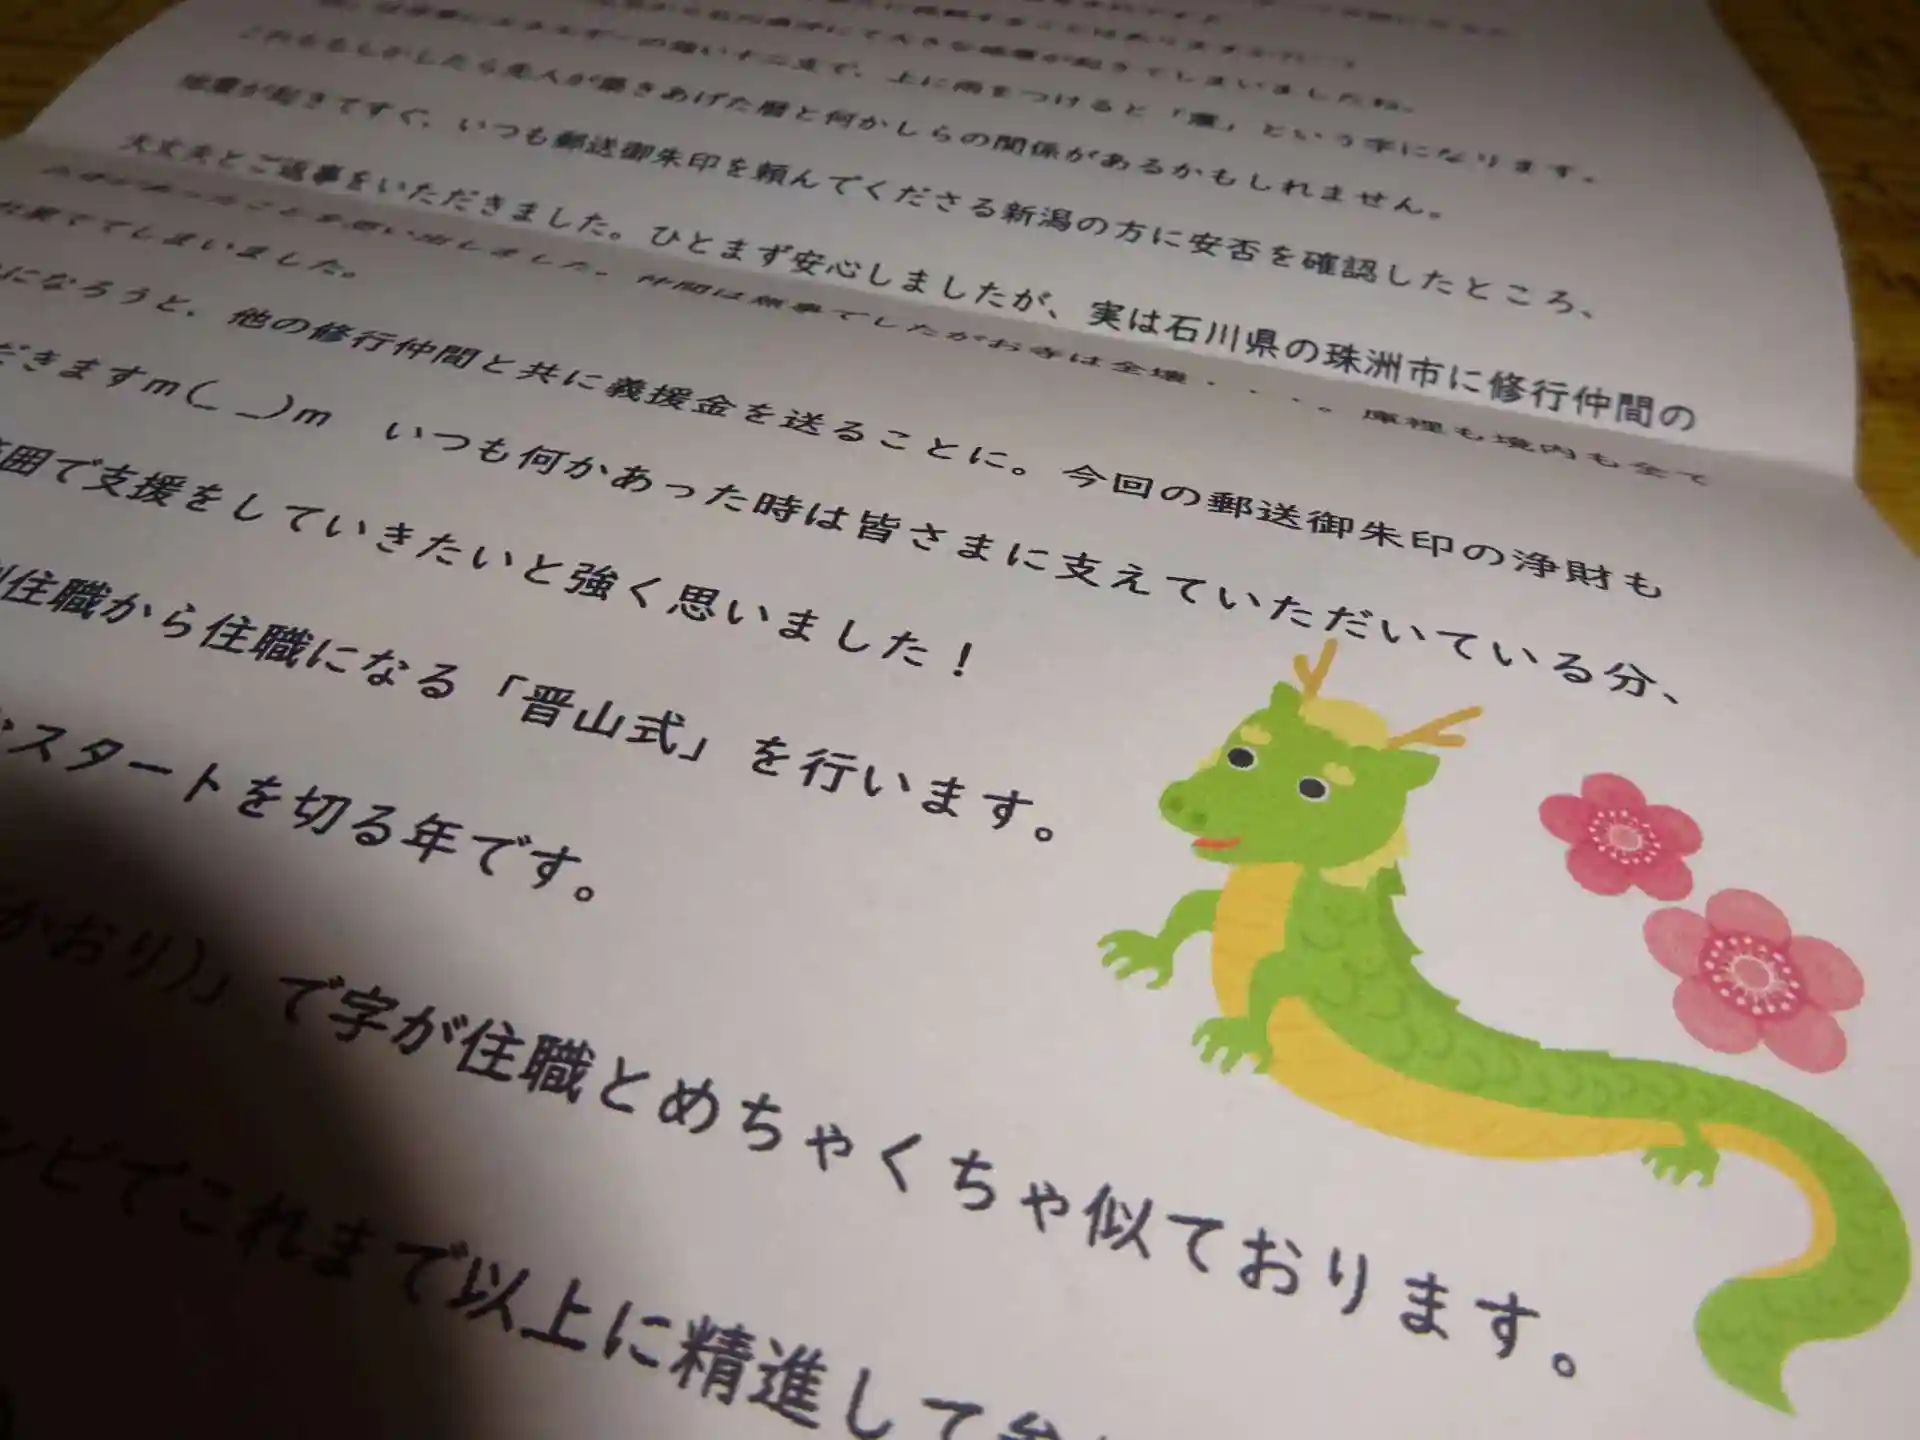 にて大きな地震が起きてしまいましたね。
の強い十二支で、上に雨をつけると「震」という字になります。
これももしかしたら先人が築きあげた暦と何かしらの関係があるかもしれません。
地震が起きてすぐ、いつも郵送御朱印を頼んでくださる新潟の方に安否を確認したところ、
大丈夫とご返事をいただきました。ひとまず安心しましたが、実は石川県の珠洲市に修行仲間の
ことを思い出しました。仲間は無事でしたがお寺は全壊・・・。庫裡も境内も全て
ててしまいました。
になろうと、他の修行仲間と共に義援金を送ることに。今回の郵送御朱印の浄財も
だきますm(_ _)m いつも何かあった時は皆さまに支えていただいている分、
囲で支援をしていきたいと強く思いました！
住職から住職になる「晋山式」を行います。
スタートを切る年です。
かおり)」で字が住職とめちゃくちゃ似ております。
ンビでこれまで以上に精進して参